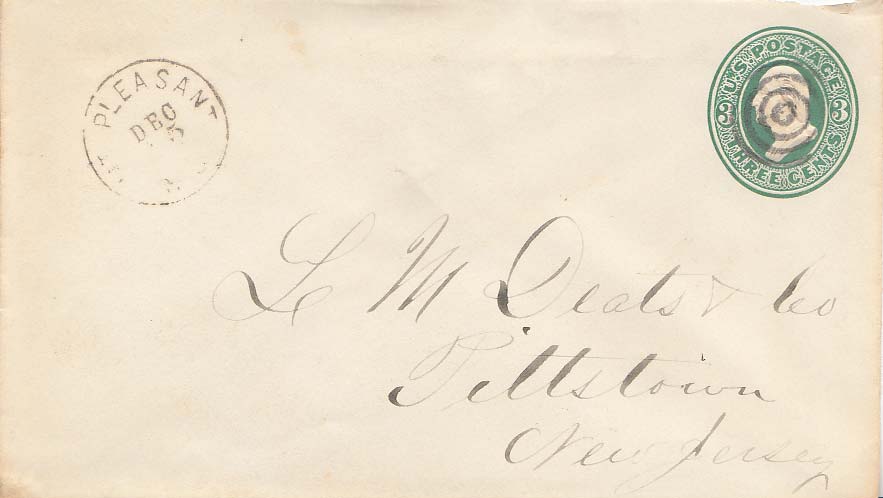 MT PLEASANT
DEC
U.S. POSTAGE
3 3
THREE CENTS
L M Deats & Co
Pittstown
New Jersey